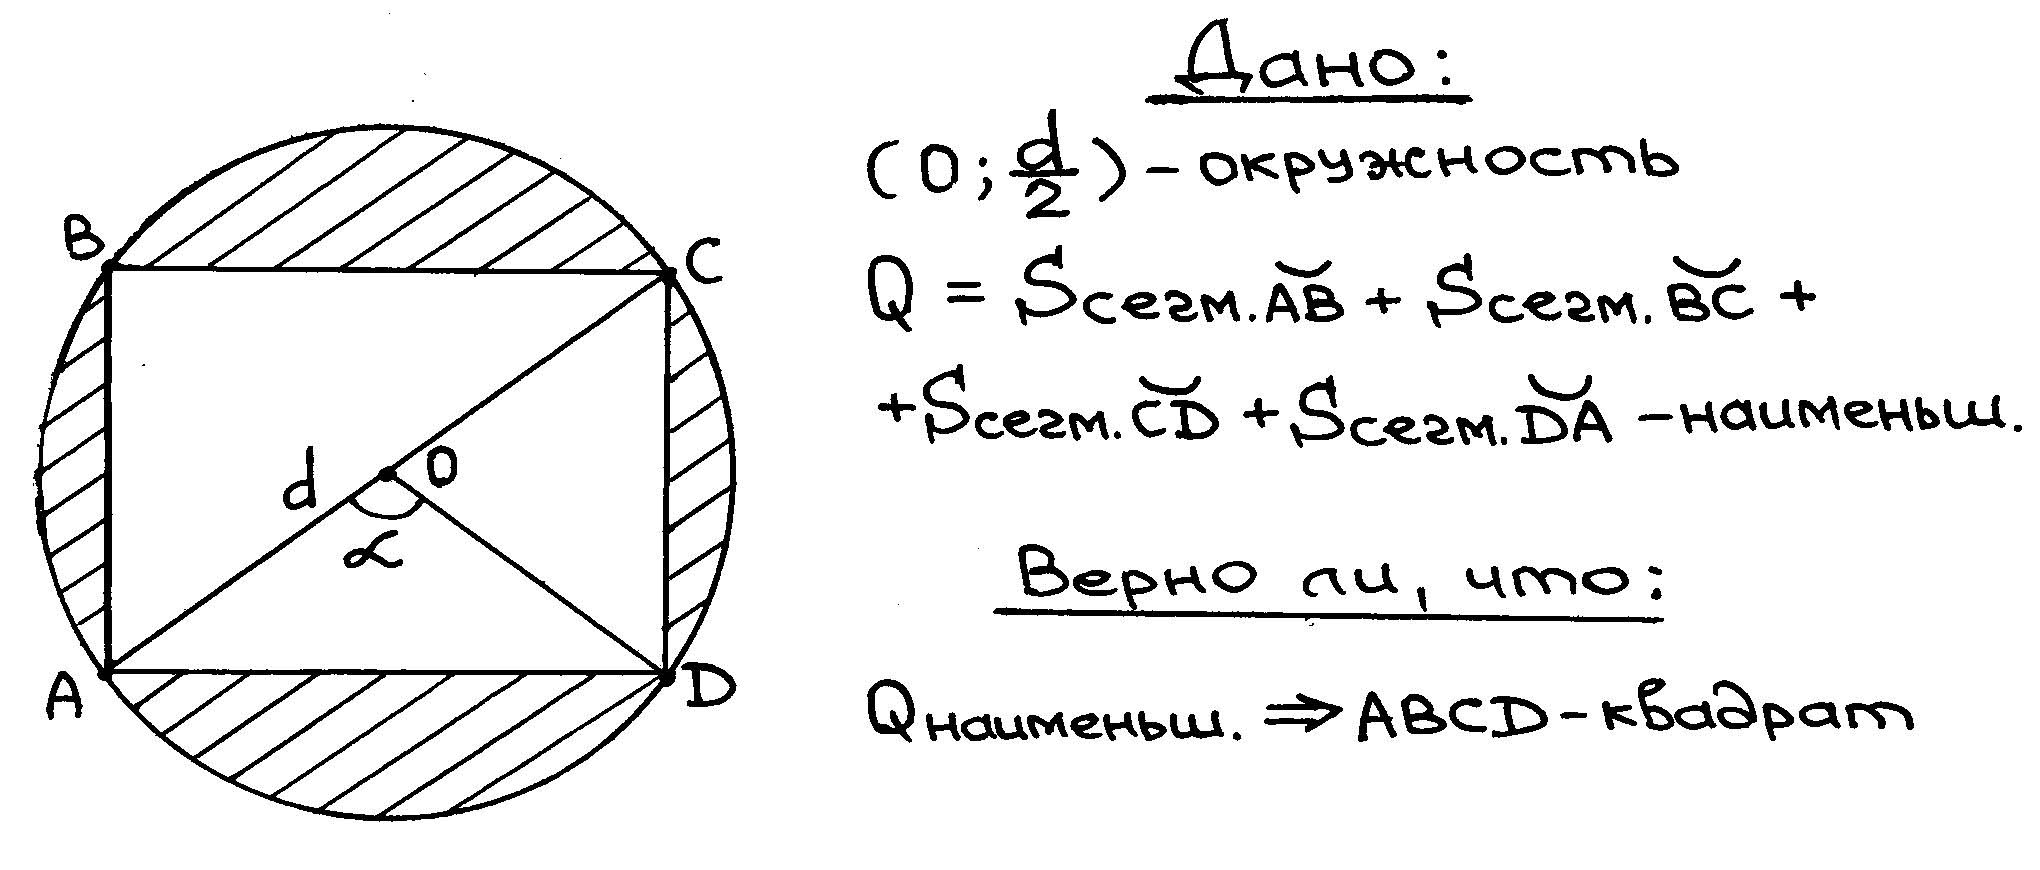 Дано:
(O; d/2) - окружность
Q = Sсегм.A͝B + Sсегм.B͝C +
+ Sсегм.C͝D + Sсегм.D͝A - наименьш.
Верно ли, что:
Qнаименьш. ⇒ ABCD - квадрат
B
C
d
O
α
A
D